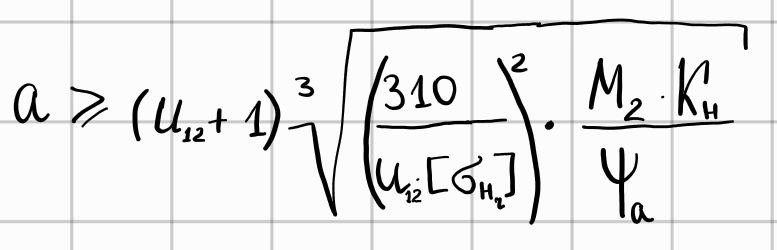 a ⩾ (u₁₂ + 1) ∛((310 / (u₁₂[σ_{H₂}]))² · (M₂ · K_H / ψ_a))